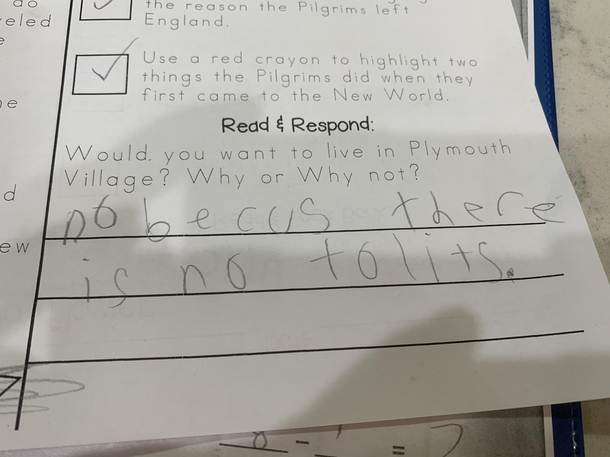 do
eled
e
the reason the Pilgrims left
England.
Use a red crayon to highlight two
things the Pilgrims did when they
first came to the New World.
Read & Respond:
Would. you want to live in Plymouth
Village? Why or Why not?
d
no becus there
ew
is no tolits.
8 - =